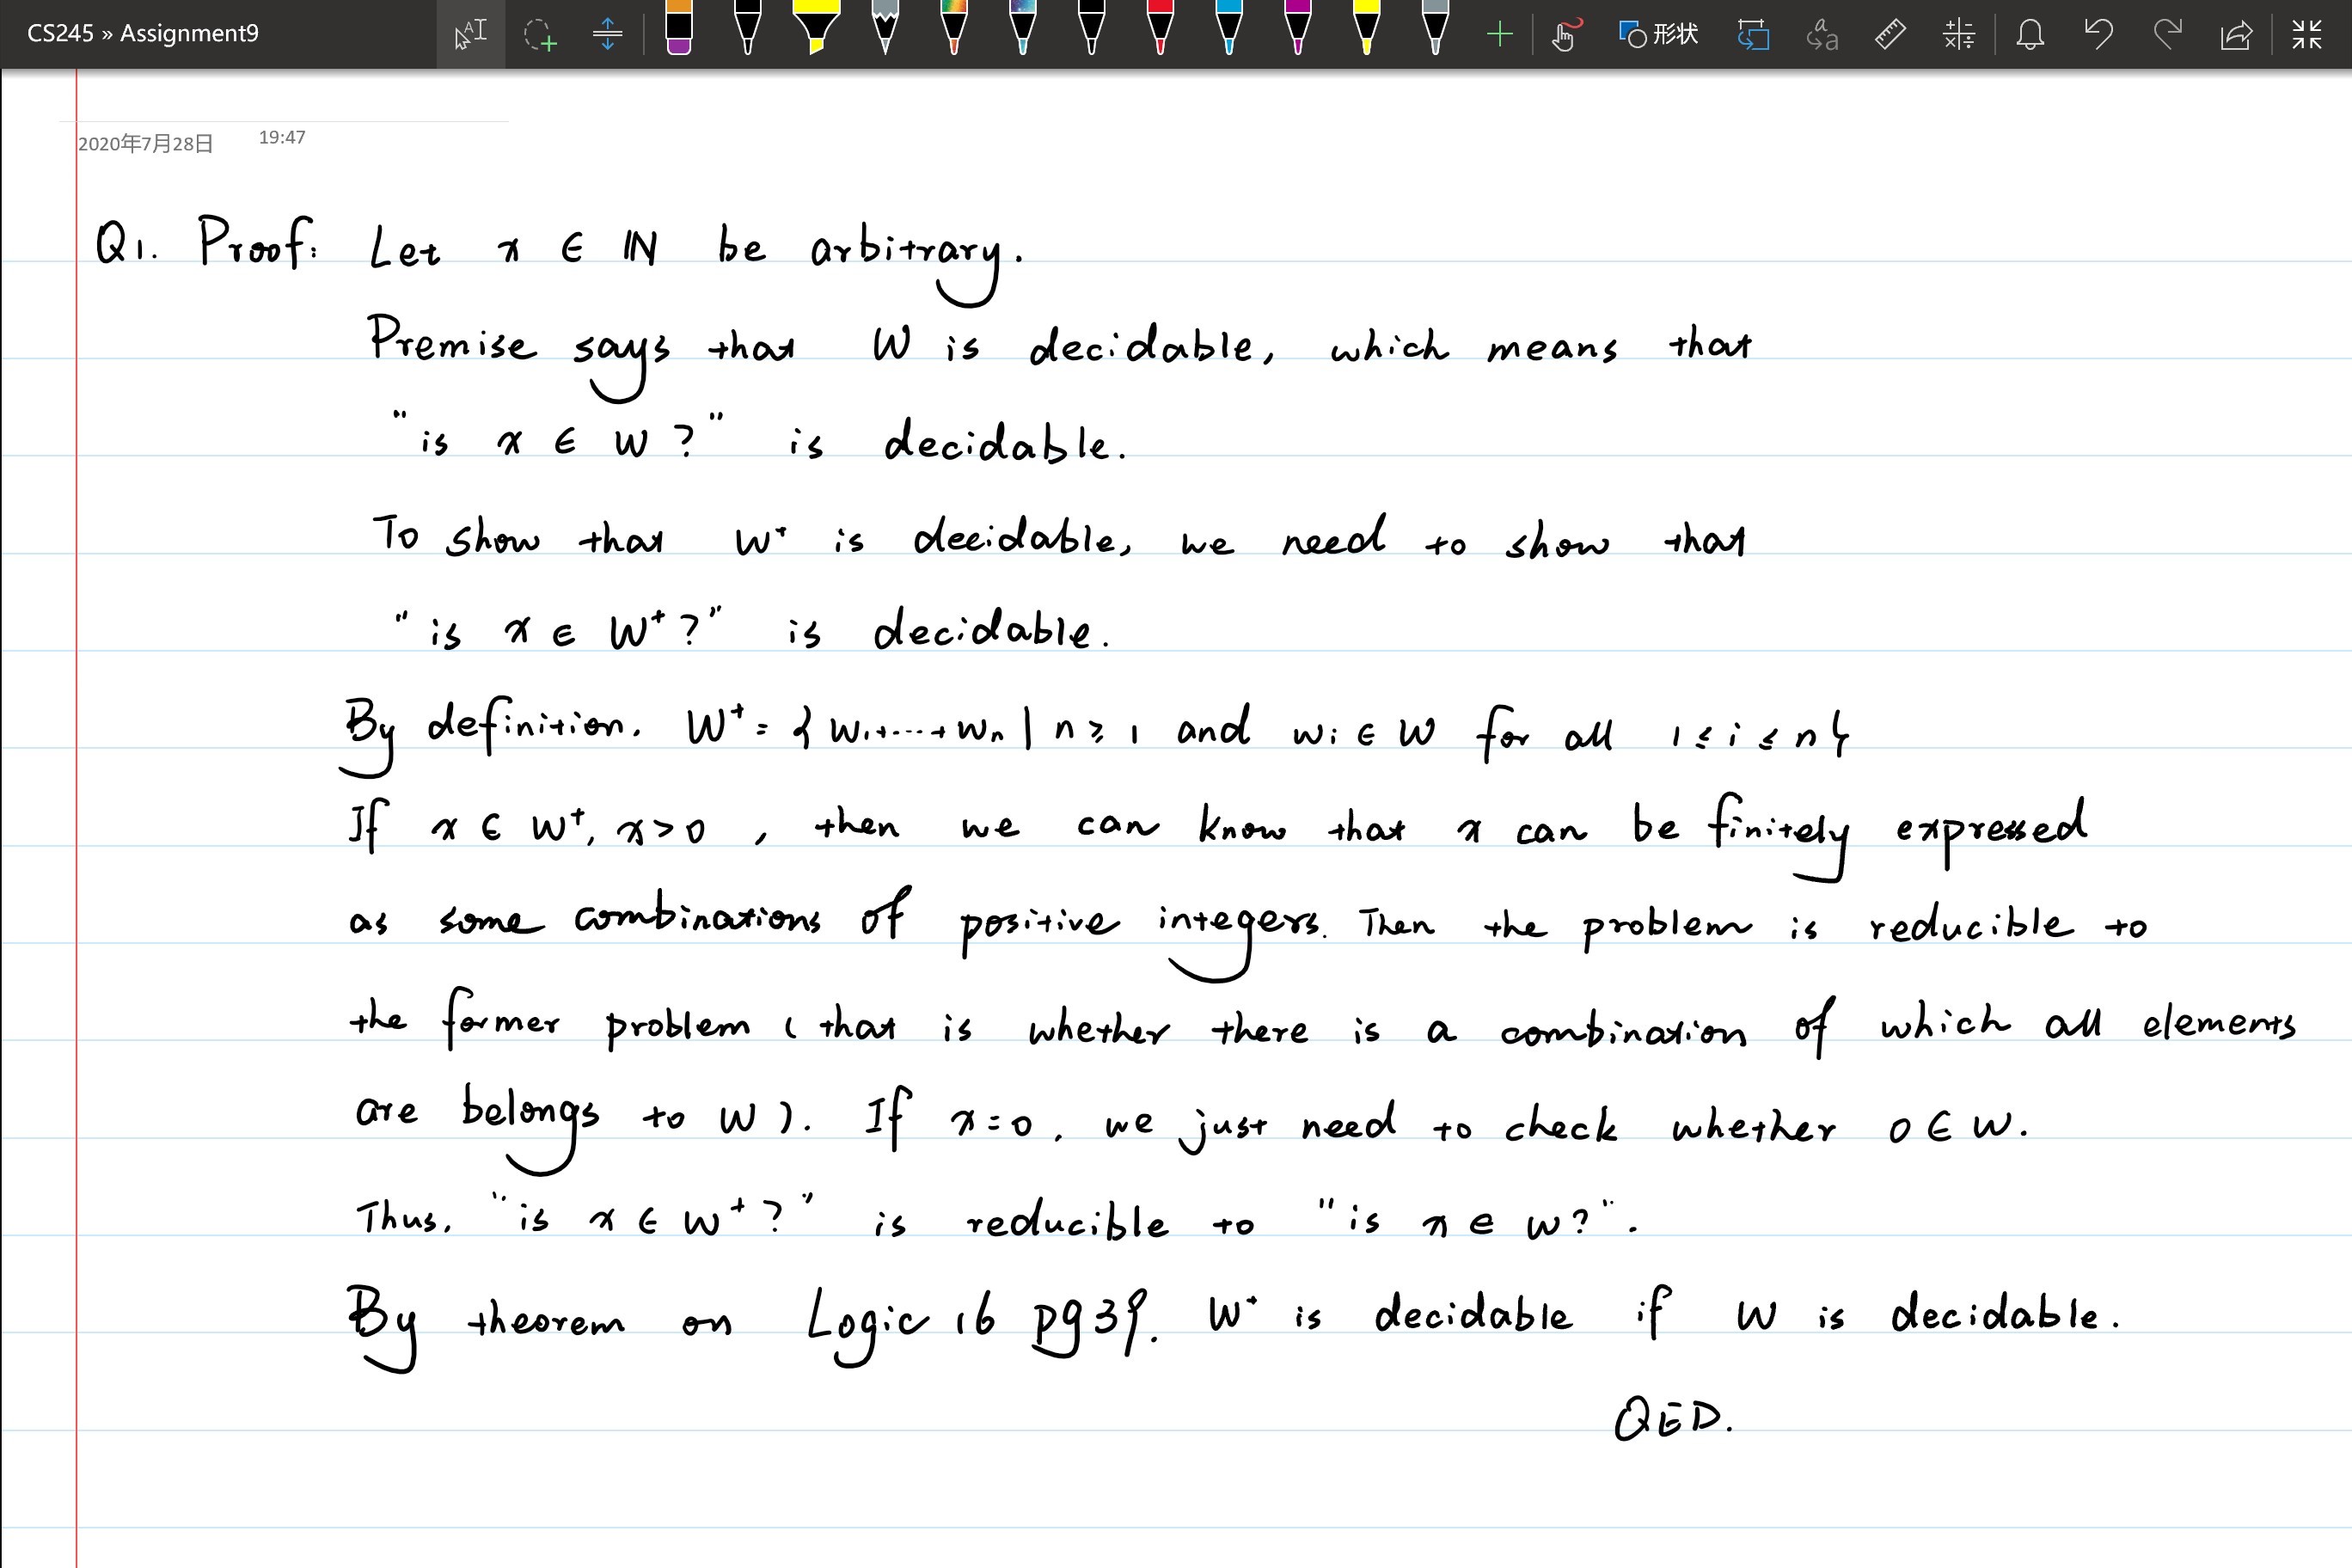 CS245 » Assignment9
形状
2020年7月28日 19:47
Q1. Proof: Let x ∈ ℕ be arbitrary.
Premise says that W is decidable, which means that
"is x ∈ W?" is decidable.
To show that W⁺ is decidable, we need to show that
"is x ∈ W⁺?" is decidable.
By definition, W⁺ = {w₁+...+wₙ | n ≥ 1 and wᵢ ∈ W for all 1 ≤ i ≤ n}
If x ∈ W⁺, x>0, then we can know that x can be finitely expressed
as some combinations of positive integers. Then the problem is reducible to
the former problem (that is whether there is a combination of which all elements
are belongs to W). If x=0, we just need to check whether 0 ∈ W.
Thus, "is x ∈ W⁺?" is reducible to "is x ∈ W?".
By theorem on Logic 16 pg39. W⁺ is decidable if W is decidable.
QED.